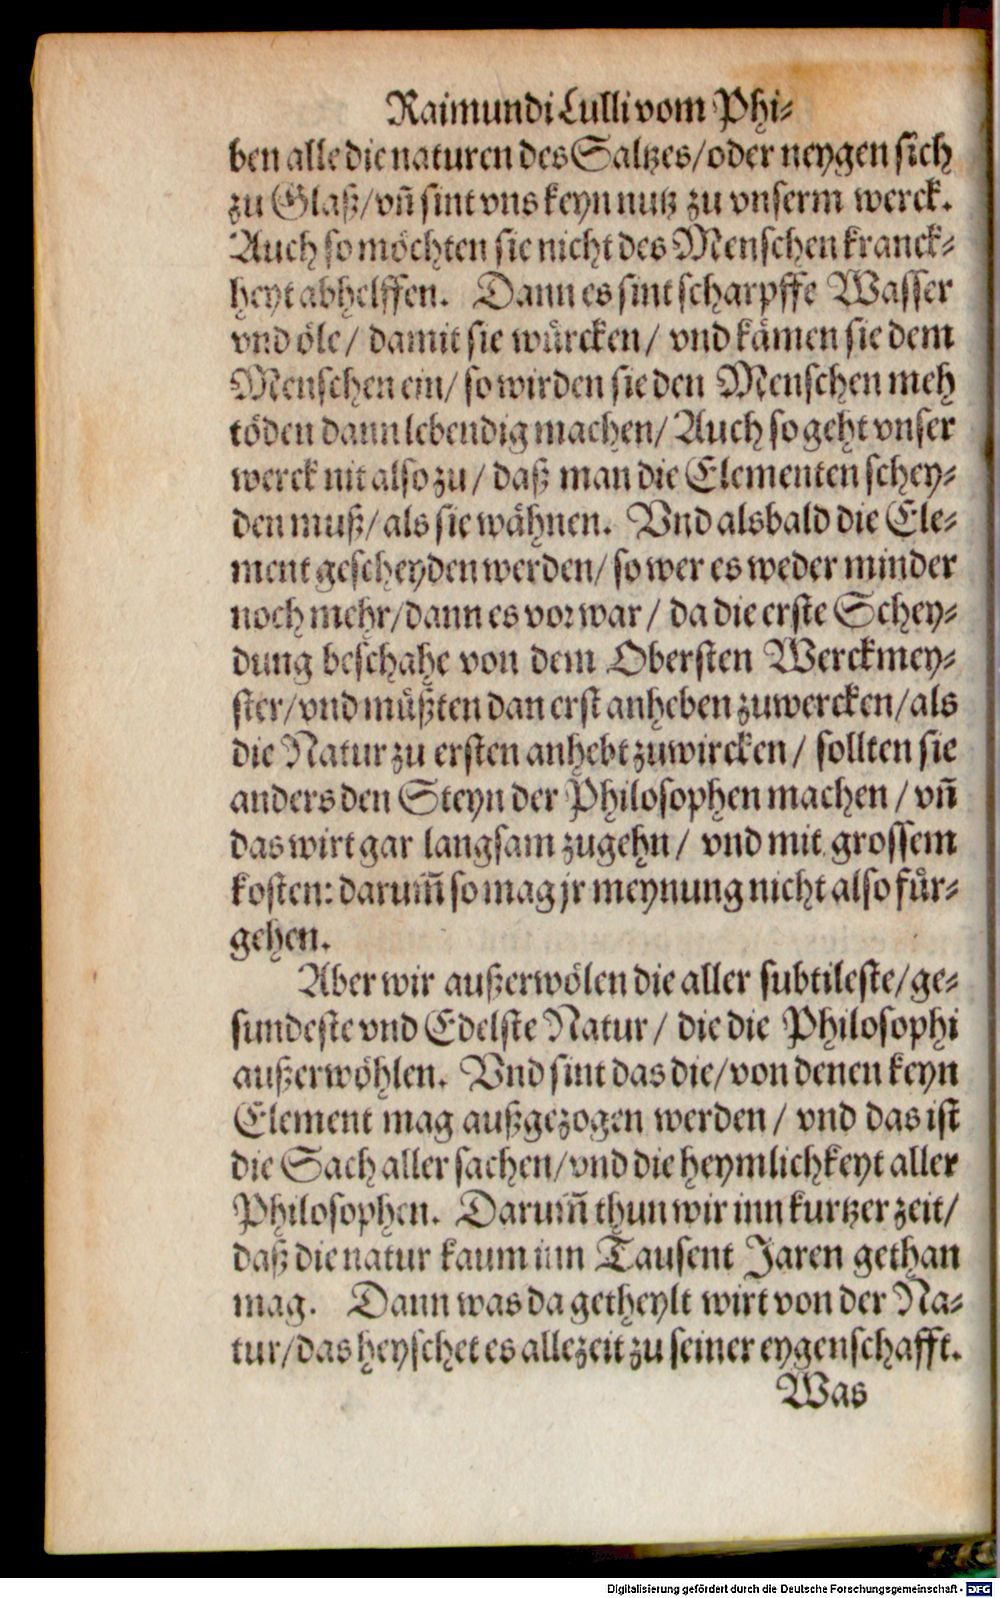 Raimundi Lulli vom Phi⸗
ben alle die naturen des Saltzes/oder neygen sich
zu Glaß/vñ sint vns keyn nutz zu vnserm werck.
Auch so möchten sie nicht des Menschen kranck⸗
heyt abhelffen. Dann es sint scharpffe Wasser
vnd öle/ damit sie würcken/ vnd kämen sie dem
Menschen ein/ so wirden sie den Menschen meh
töden dann lebendig machen/ Auch so geht vnser
werck nit also zu/ daß man die Elementen schey⸗
den muß/ als sie wähnen. Vnd alsbald die Ele⸗
ment gescheyden werden/ so wer es weder minder
noch mehr/dann es vor war/ da die erste Schey⸗
dung beschahe von dem Obersten Werckmey⸗
ster/vnd müßten dan erst anheben zuwercken/als
die Natur zu ersten anhebt zuwircken/ sollten sie
anders den Steyn der Philosophen machen/ vñ
das wirt gar langsam zugehn/ vnd mit grossem
kosten: darum̃ so mag jr meynung nicht also für⸗
gehen.
Aber wir außerwölen die aller subtileste/ge⸗
sundeste vnd Edelste Natur/ die die Philosophi
außerwöhlen. Vnd sint das die/von denen keyn
Element mag außgezogen werden/ vnd das ist
die Sach aller sachen/vnd die heymlichkeyt aller
Philosophen. Darum̃ thun wir inn kurtzer zeit/
daß die natur kaum inn Tausent Jaren gethan
mag. Dann was da getheylt wirt von der Na⸗
tur/das heyschet es allezeit zu seiner eygenschafft.
Was
Digitalisierung gefördert durch die Deutsche Forschungsgemeinschaft - DFG